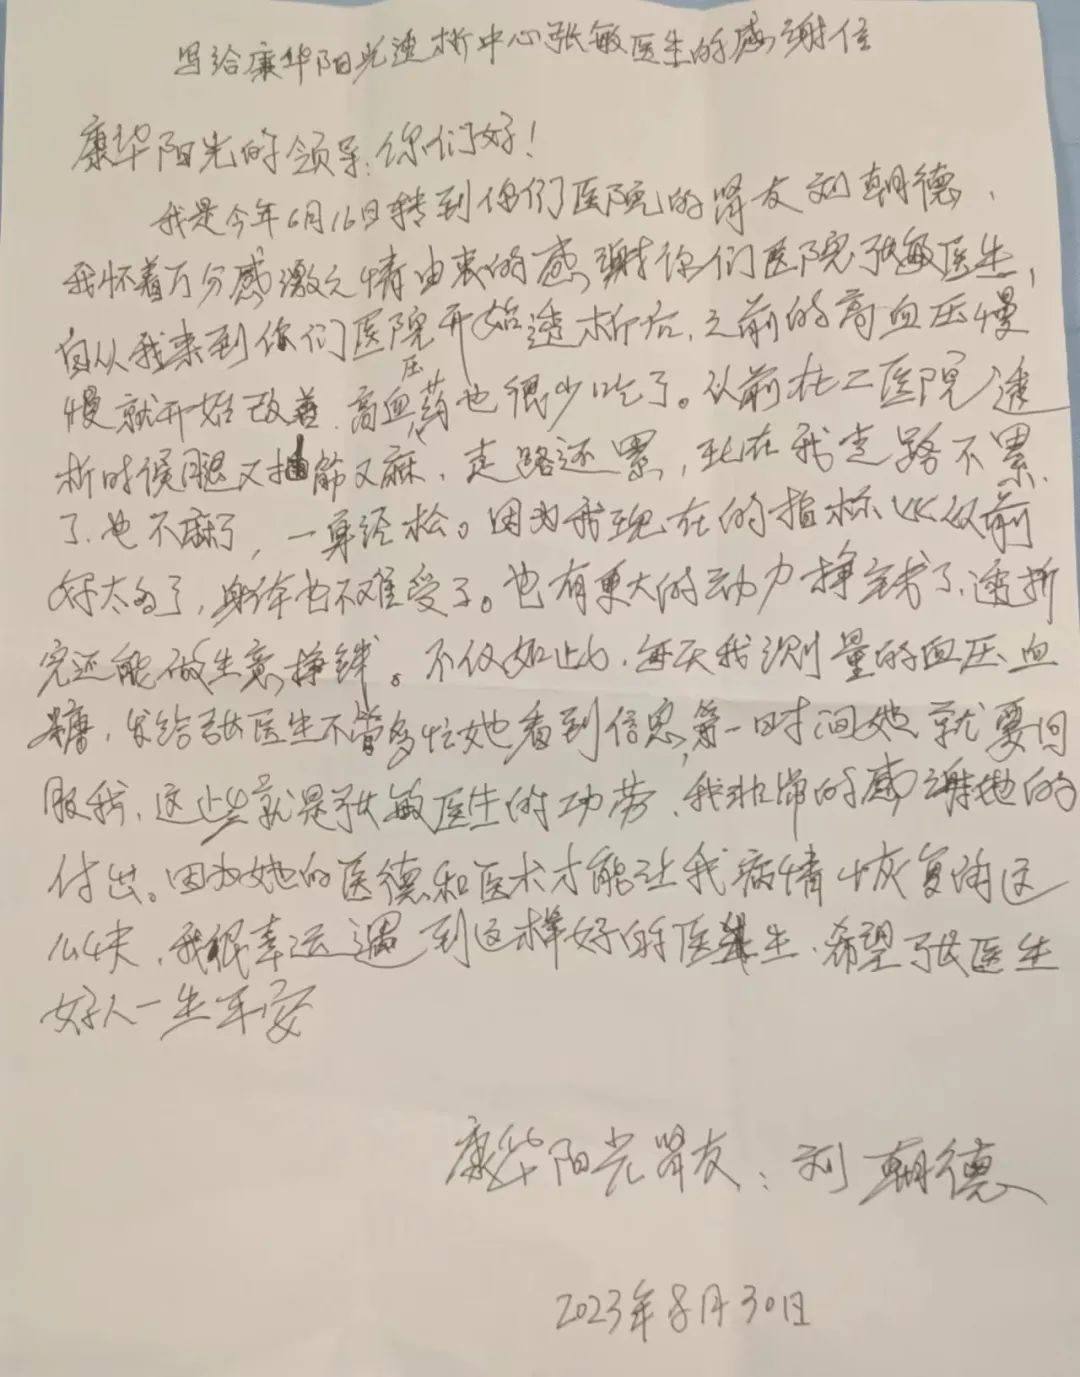 写给康华阳光透析中心张敏医生的感谢信
康华阳光的领导:你们好!
我是今年6月16日转到你们医院的肾友刘朝德、
我怀着万分感激之情由衷的感谢你们医院张敏医生,
自从我来到你们医院开始透析后,之前的高血压慢
慢就开始改善、高血压药也很少吃了。以前在二医院透
析时候腿又抽筋又麻、走路还累,现在我走路不累
了、也不麻了,一身轻松。因为我现在的指标比以前
好太多了,身体也不难受了。也有更大的动力挣钱了、透析
完还能做生意挣钱。不仅如此、每天我测量的血压血
糖,发给张医生不管多忙她看到信息,第一时间她就要回
服我、这些就是张敏医生的功劳、我非常的感谢她的
付出。因为她的医德和医术才能让我病情恢复的这
么快、我很幸运遇到这样好的医生、希望张医生
好人一生平安
康华阳光肾友:刘朝德
2023年8月30日